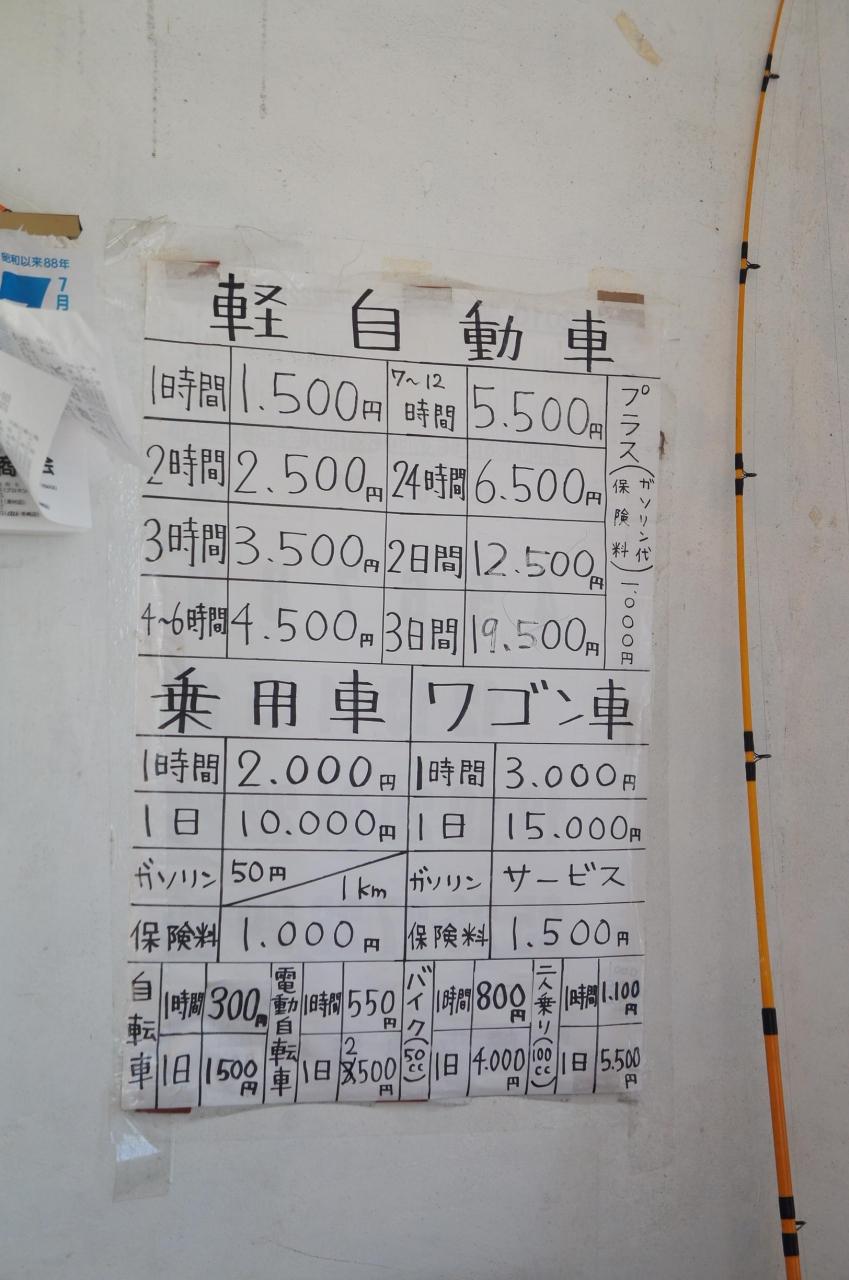 昭和以来88年
7月
軽自動車
1時間 1.500円 7～12時間 5.500円
2時間 2.500円 24時間 6.500円
3時間 3.500円 2日間 12.500円
4～6時間 4.500円 3日間 19.500円
プラス(ガソリン代 保険料)1.000円
乗用車 ワゴン車
1時間 2.000円 1時間 3.000円
1日 10.000円 1日 15.000円
ガソリン 50円 1km ガソリン サービス
保険料 1.000円 保険料 1.500円
自転車 電動自転車 バイク(50cc) 二人乗り(100cc)
1時間 300円 1時間 550円 1時間 800円 1時間 1.100円
1日 1500円 1日 2500円 1日 4.000円 1日 5.500円